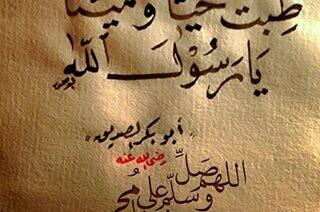 طِبْتَ حَيًّا وَمَيِّتًا
يَا رَسُوْلَ اللّٰهِ
أبو بكر الصديق
رضي الله عنه
اللهم صَلِّ
وَسَلِّم على